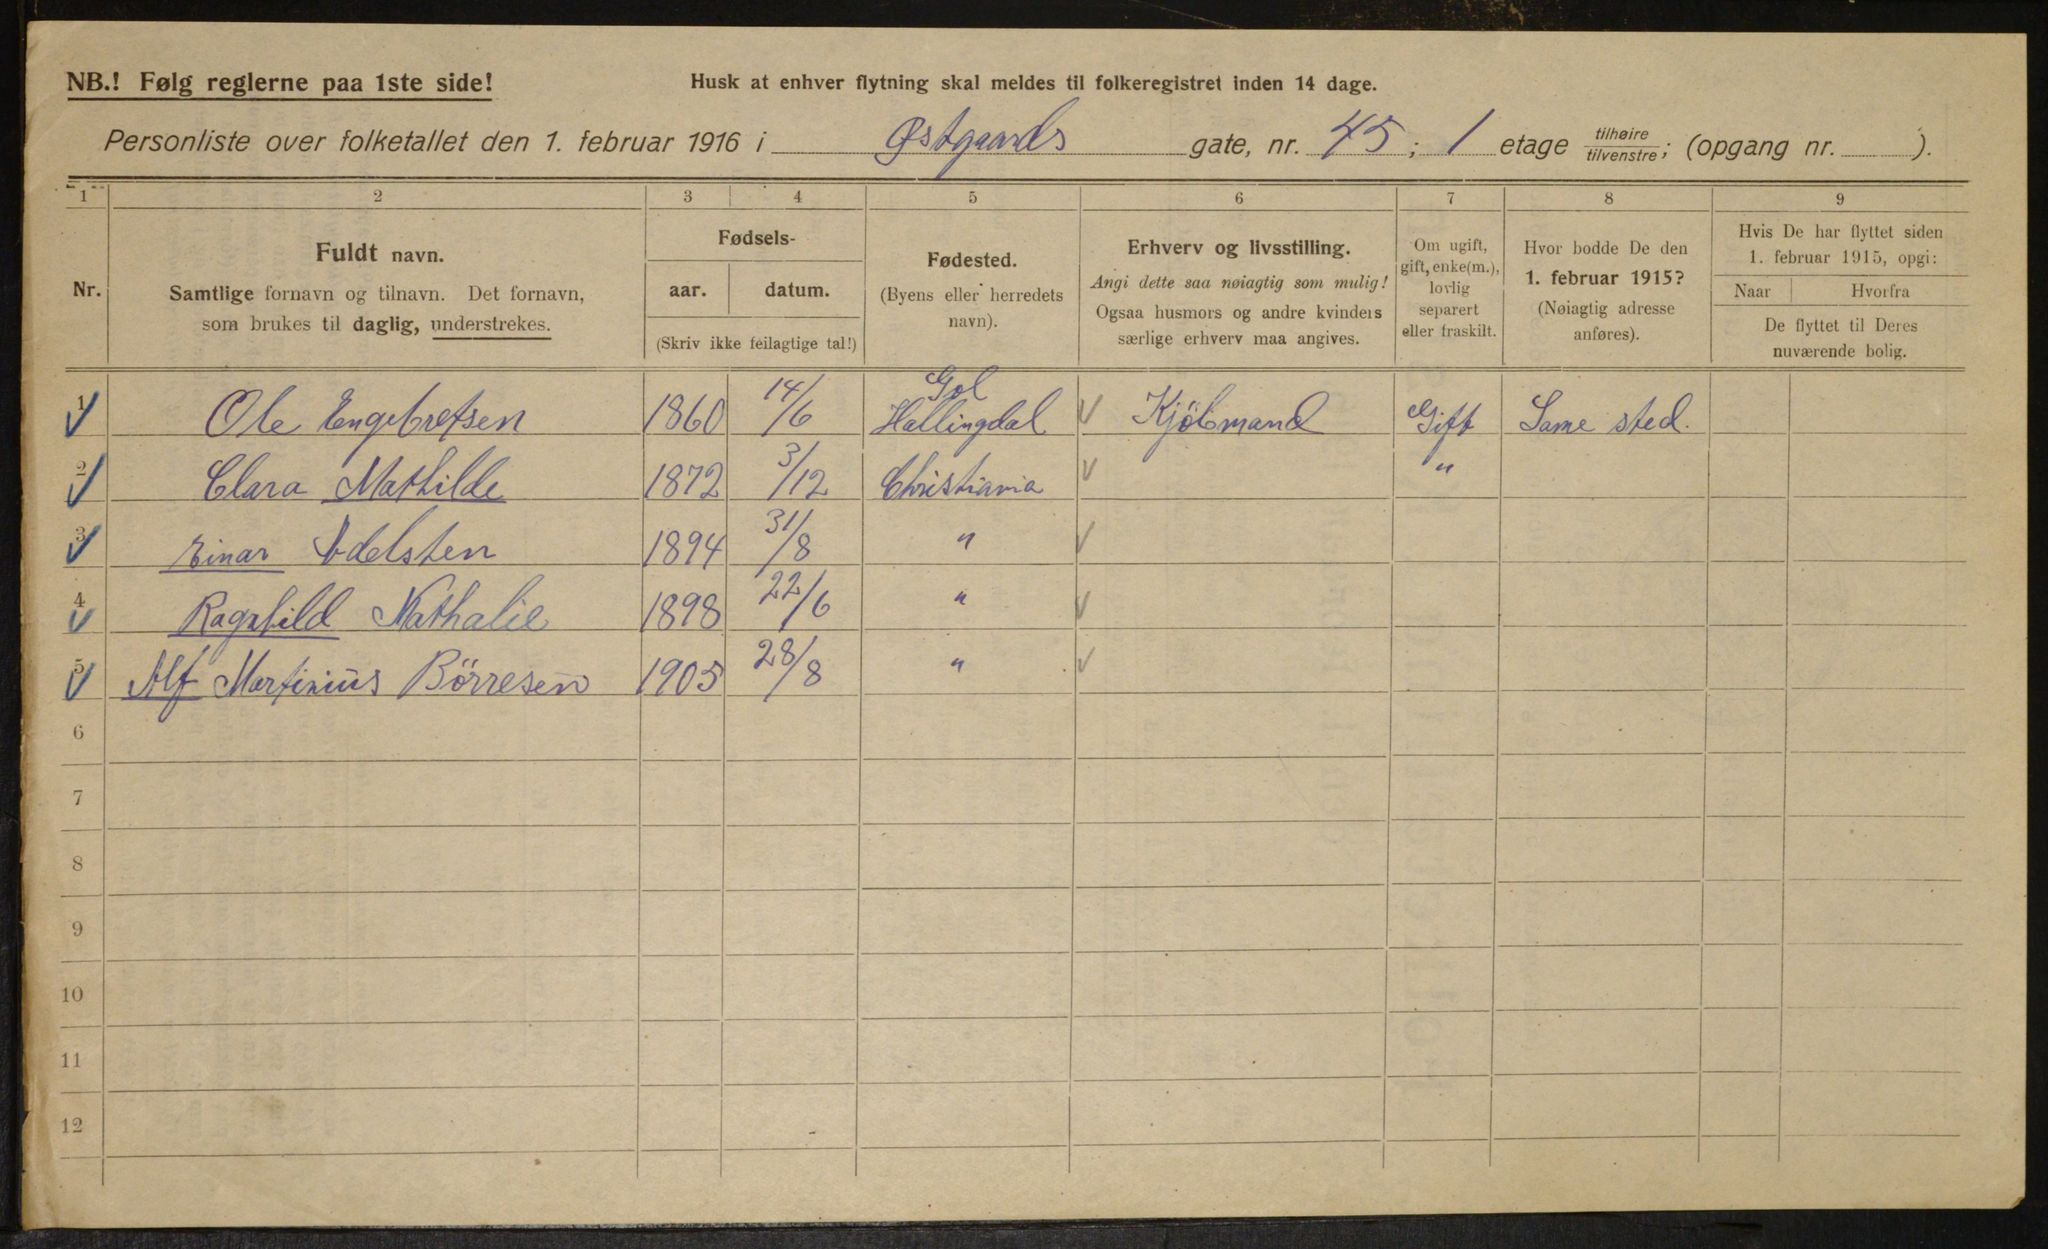 NB.! Følg reglerne paa 1ste side!
Husk at enhver flytning skal meldes til folkeregistret inden 14 dage.
Personliste over folketallet den 1. februar 1916 i Østgaards gate, nr. 45; 1 etage tilhøire/tilvenstre; (opgang nr. ).
1 2 3 4 5 6 7 8 9
Nr.
Fuldt navn.
Samtlige fornavn og tilnavn. Det fornavn,
som brukes til daglig, understrekes.
Fødsels-
aar. datum.
(Skriv ikke feilagtige tal!)
Fødested.
(Byens eller herredets
navn).
Erhverv og livsstilling.
Angi dette saa nøiagtig som mulig!
Ogsaa husmors og andre kvinders
særlige erhverv maa angives.
Om ugift,
gift, enke(m.),
lovlig
separert
eller fraskilt.
Hvor bodde De den
1. februar 1915?
(Nøiagtig adresse
anføres).
Hvis De har flyttet siden
1. februar 1915, opgi:
Naar Hvorfra
De flyttet til Deres
nuværende bolig.
1 Ole Engebretsen 1860 14/6 Gol Hallingdal Kjöbmand Gift Same sted.
2 Clara Mathilde 1872 3/12 Christiania "
3 Einar Adelsten 1894 31/8 "
4 Ragnhild Nathalie 1898 22/6 "
5 Alf Martinius Börresen 1905 28/8 "
6
7
8
9
10
11
12